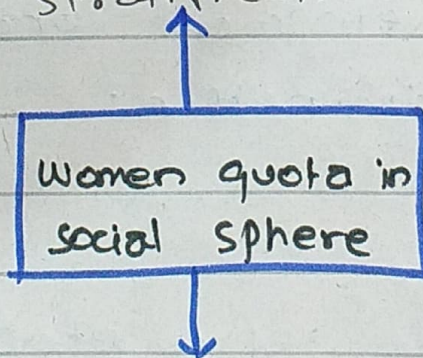 Women quota in
social sphere